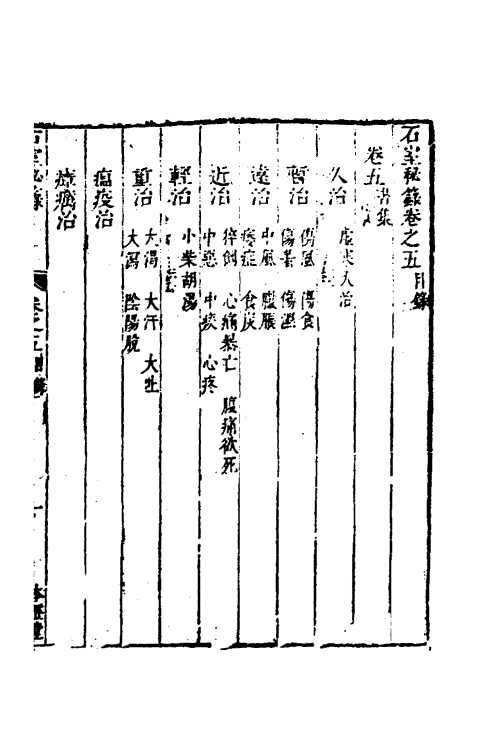 石室秘籙卷之五目錄
卷五書集
久治 虛寒久治
暫治 傷風 傷食
傷暑 傷濕
遠治 中風 腹脹
痿症 食炭
近治 猝倒 心痛暴亡 腹痛欲死
中惡 中痰 心疼
輕治 小柴胡湯
重治 大渴 大汗 大吐
大瀉 陰陽脫
瘟疫治
瘴癘治
石室秘籙 卷之五目錄 一 本衙藏